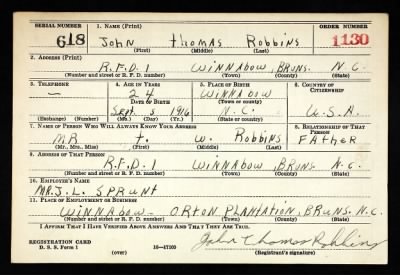 SERIAL NUMBER 1. NAME (Print) ORDER NUMBER
618 John thomas Robbins 1130
(First) (Middle) (Last)
2. ADDRESS (Print)
R.F.D.1 WINNABOW, BRUNS. N.C.
(Number and street or R. F. D. number) (Town) (County) (State)
3. TELEPHONE 4. AGE IN YEARS 5. PLACE OF BIRTH 6. COUNTRY OF CITIZENSHIP
— 24 WINNABOW
DATE OF BIRTH (Town or county)
Sept. 5 1916 N.C. U.S.A.
(Exchange) (Number) (Mo.) (Day) (Yr.) (State or country)
7. NAME OF PERSON WHO WILL ALWAYS KNOW YOUR ADDRESS 8. RELATIONSHIP OF THAT PERSON
MR t. w. Robbins FAther
(Mr., Mrs., Miss) (First) (Middle) (Last)
9. ADDRESS OF THAT PERSON
R.F.D.1 WINNABOW, BRUNS. N.C.
(Number and street or R. F. D. number) (Town) (County) (State)
10. EMPLOYER'S NAME
MR. J. L. SPRUNT
11. PLACE OF EMPLOYMENT OR BUSINESS
WINNABOW - ORTON PLANTATION, BRUNS. N.C.
(Number and street or R. F. D. number) (Town) (County) (State)
I AFFIRM THAT I HAVE VERIFIED ABOVE ANSWERS AND THAT THEY ARE TRUE.
REGISTRATION CARD John Thomas Robbins
D. S. S. Form 1 (over) 16—17105 (Registrant's signature)